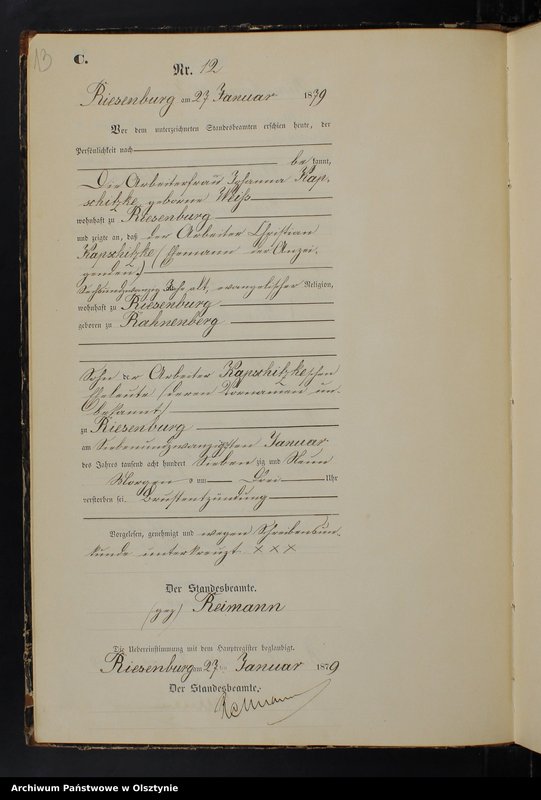 13
C.
Nr. 12
Riesenburg am 27 Januar 1879
Vor dem unterzeichneten Standesbeamten erschien heute, der
Persönlichkeit nach
be kannt,
Die Arbeiterfrau Johanna Kap-
schitzke geborne Weiß
wohnhaft zu Riesenburg
und zeigte an, daß der Arbeiter Christian
Kapschitzke (Ehemann der Anzei-
genden)
Sechsundzwanzig Jahr alt, evangelischer Religion,
wohnhaft zu Riesenburg
geboren zu Rahnenberg
Sohn der Arbeiter Kapschitzkeschen
Eheleute (deren Vornamen un-
bekannt)
zu Riesenburg
am Siebenundzwanzigsten Januar
des Jahres tausend acht hundert Sieben zig und Neun
Morgen s um Drei Uhr
verstorben sei. Brustentzündung
Vorgelesen, genehmigt und wegen Schreibensun-
kunde unterkreuzt x x x
Der Standesbeamte.
(gez) Reimann
Die Uebereinstimmung mit dem Hauptregister beglaubigt.
Riesenburg am 27 ten Januar 1879
Der Standesbeamte.
Reimann
Archiwum Państwowe w Olsztynie